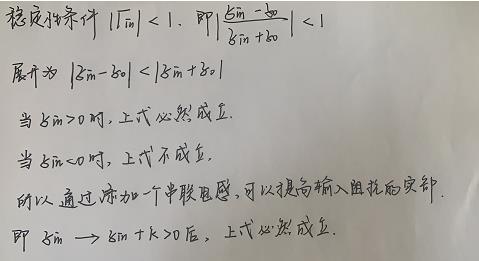 稳定性条件 |Γin| < 1. 即|(zin - z0)/(zin + z0)| < 1
展开为 |zin - z0| < |zin + z0|
当 zin > 0 时, 上式必然成立.
当 zin < 0 时, 上式不成立.
所以通过添加一个串联电感, 可以提高输入阻抗的实部.
即 zin → zin + k > 0 后, 上式必然成立.